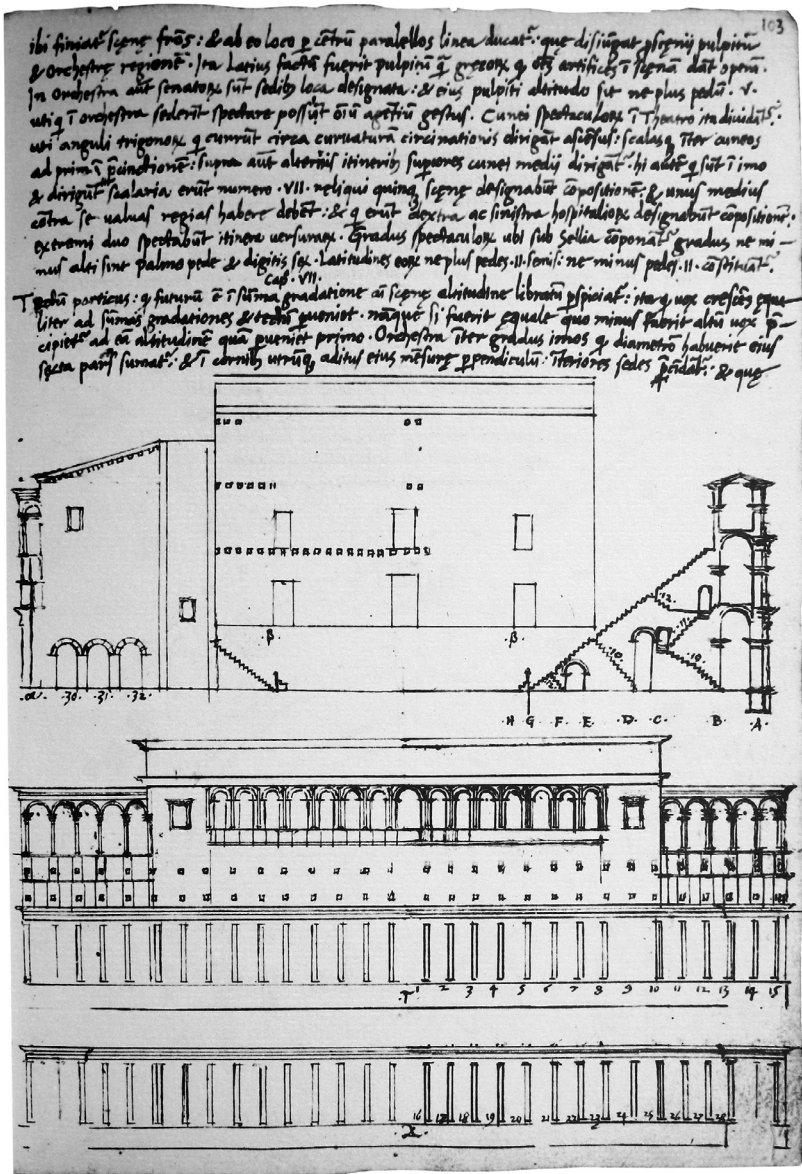 103
ibi finiatᷣ scęnę frōs : & ab eo loco ꝑ cētrū paralellos linea ducatᷣ : que disiūgat ꝓscęnij pulpitū
& orchestrę regionē . Ita latius factū fuerit pulpitū q̄ gręcoꝝ ꝙ oēs artifices ī scęnā dāt operā .
In orchestra aūt senatoꝝ sūt sedibꝫ loca designata : & eius pulpiti altitudo sit ne plus pedū . V .
uti q̄ ī orchestra sederīt spectare possīt oīū agētiū gestus . Cunei spectaculoꝝ ī Theatro ita dividātᷣ .
uti anguli trigonoꝝ q̄ currūt circa curvaturā circinationis dirigāt ascēsus : scalasq̄ īter cuneos
ad primā p̄cinctionē : supra aūt alternis itineribꝫ superes cunei medij dirigātᷣ . hi autē q̄ sūt ī imo
& dirigūt scalaria erūt numero . VII . reliqui quinq̄ scęnę designabūt cōpositionē : & unus medius
cōtra se valvas regias habere debet : & q̄ erūt dextra ac sinistra hospitalioꝝ designabūt cōpositionē .
exeremi duo spectabūt itinera versuraꝝ . Gradus spectaculoꝝ ubi sub sellia cōponātᷣ gradus ne mi-
nus alti sint palmo pede & digitis sex . Latitudines eoꝝ ne plus pedes . II . semis : ne minus pedes . II . cōstituātᷣ .
Cap . VII .
Tectū porticus : ꝙ futurū ē ī sūma gradatione cū scęnę altitudine libratū ꝑspiciatᷣ : ita q̄ vox crescēs ęqua
liter ad sūmas gradationes & tectū ꝑveniet . nāque si fuerit ęquale quo minus fuerit altū vox p̄-
cipietᷣ ad eā altitudinē quā ꝑveniet primo . Orchestra īter gradus imos ꝙ diametrō habuerit eius
sęcta pars sumatᷣ : & ī cornibꝫ utrīq̄ aditus eius mēsurę ꝑpendiculū : īteriores sedes p̄cidātᷣ : & quę
.12.
.11.
.10.
.10.
.β. .β.
.α. .30. .31. .32.
.H G .F. E. .D. .C. B .A.
.T. 1 2 3 4 5 6 7 8 9 10 11 12 13 14 15
16 17 18 19 20 21 22 23 24 25 26 27 28
.X.